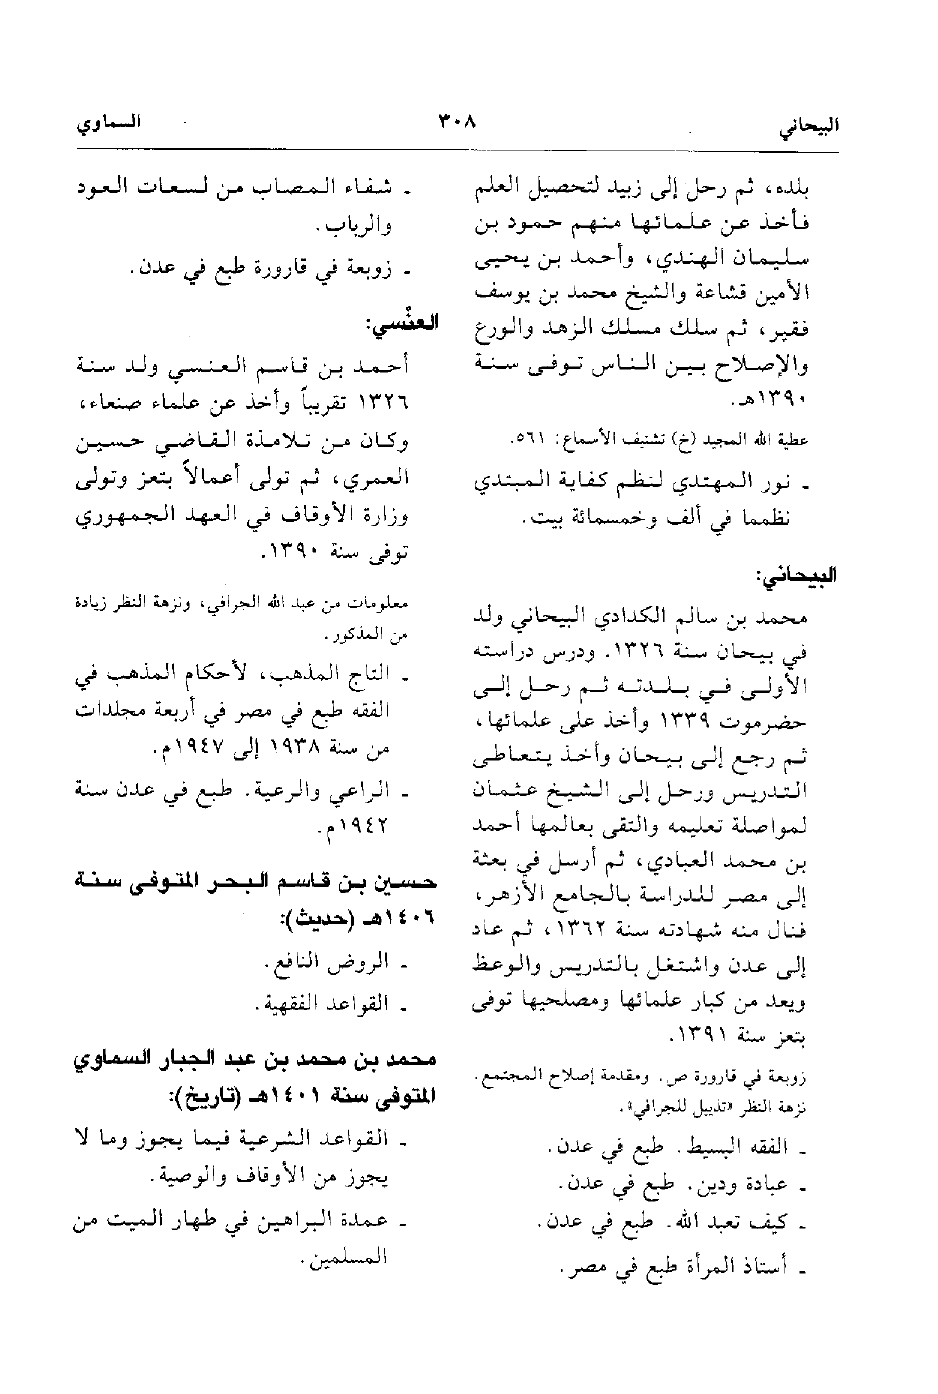 البيحاني
٣٠٨
السماوي
بلده، ثم رحل إلى زبيد لتحصيل العلم
فأخذ عن علمائها منهم حمود بن
سليمان الهندي، وأحمد بن يحيى
الأمين قشاعة والشيخ محمد بن يوسف
فقير، ثم سلك مسلك الزهد والورع
والإصلاح بين الناس توفى سنة
١٣٩٠هـ.
عطية الله المجيد (خ) تشنيف الأسماع: ٥٦١.
- نور المهتدي لنظم كفاية المبتدي
نظمها في ألف وخمسمائة بيت.
البيحاني:
محمد بن سالم الكدادي البيحاني ولد
في بيحان سنة ١٣٢٦. ودرس دراسته
الأولى في بلدته ثم رحل إلى
حضرموت ١٣٣٩ وأخذ على علمائها،
ثم رجع إلى بيحان وأخذ يتعاطى
التدريس ورحل إلى الشيخ عثمان
لمواصلة تعليمه والتقى بعالمها أحمد
بن محمد العبادي، ثم أرسل في بعثة
إلى مصر للدراسة بالجامع الأزهر،
فنال منه شهادته سنة ١٣٦٢، ثم عاد
إلى عدن واشتغل بالتدريس والوعظ
ويعد من كبار علمائها ومصلحيها توفى
بتعز سنة ١٣٩١.
زوبعة في قارورة ص. ومقدمة إصلاح المجتمع.
نزهة النظر «تذييل للجرافي».
- الفقه البسيط. طبع في عدن.
- عبادة ودين. طبع في عدن.
- كيف تعبد الله. طبع في عدن.
- أستاذ المرأة طبع في مصر.
- شفاء المصاب من لسعات العود
والرباب.
- زوبعة في قارورة طبع في عدن.
العنْسي:
أحمد بن قاسم العنسي ولد سنة
١٣٢٦ تقريباً وأخذ عن علماء صنعاء،
وكان من تلامذة القاضي حسين
العمري، ثم تولى أعمالاً بتعز وتولى
وزارة الأوقاف في العهد الجمهوري
توفى سنة ١٣٩٠.
معلومات من عبد الله الجرافي، ونزهة النظر زيادة
من المذكور.
- التاج المذهب، لأحكام المذهب في
الفقه طبع في مصر في أربعة مجلدات
من سنة ١٩٣٨ إلى ١٩٤٧م.
- الراعي والرعية. طبع في عدن سنة
١٩٤٢م.
حسين بن قاسم البحر المتوفى سنة
١٤٠٦هـ (حديث):
- الروض النافع.
- القواعد الفقهية.
محمد بن محمد بن عبد الجبار السماوي
المتوفى سنة ١٤٠١هـ (تاريخ):
- القواعد الشرعية فيما يجوز وما لا
يجوز من الأوقاف والوصية.
- عمدة البراهين في طهار الميت من
المسلمين.